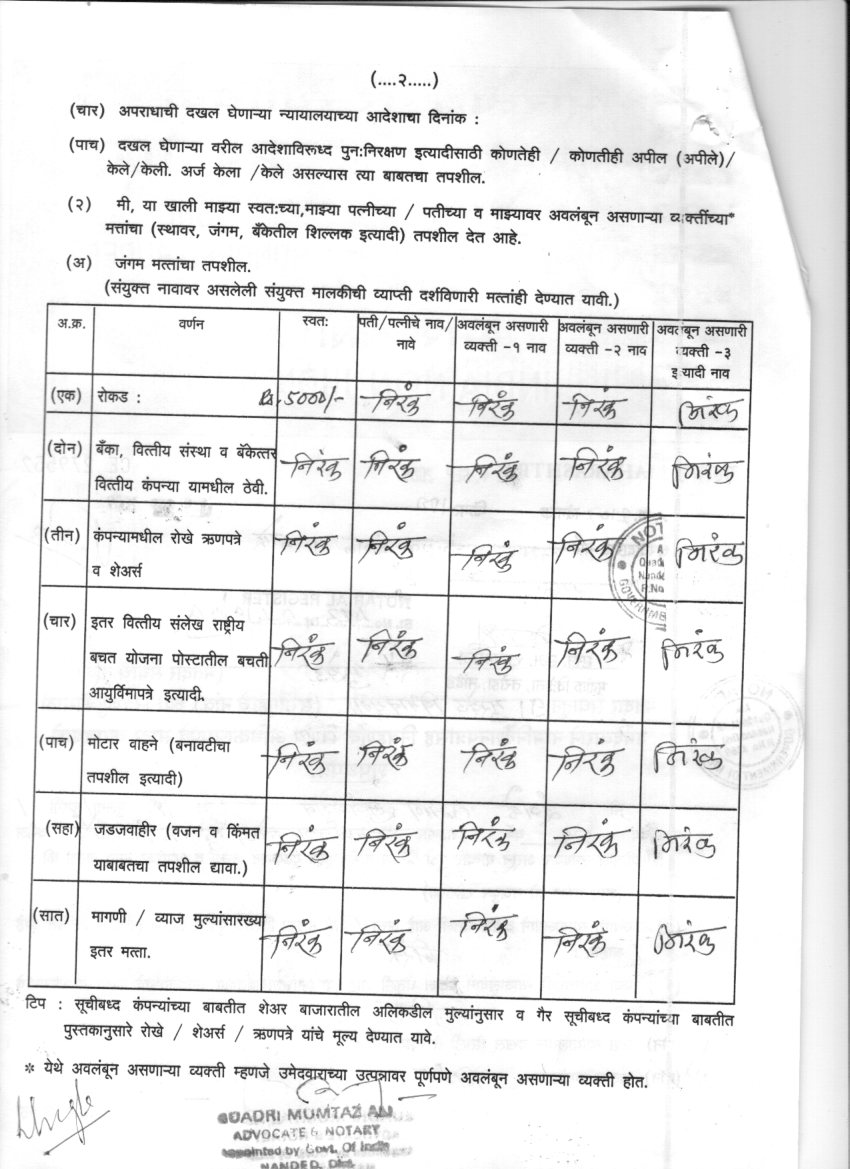 (....२.....)
(चार) अपराधाची दखल घेणाऱ्या न्यायालयाच्या आदेशाचा दिनांक :
(पाच) दखल घेणाऱ्या वरील आदेशाविरूध्द पुन:निरक्षण इत्यादीसाठी कोणतेही / कोणतीही अपील (अपीले)/
केले/केली. अर्ज केला /केले असल्यास त्या बाबतचा तपशील.
(२) मी, या खाली माझ्या स्वत:च्या,माझ्या पत्नीच्या / पतीच्या व माझ्यावर अवलंबून असणाऱ्या व्यक्तींच्या*
मत्तांचा (स्थावर, जंगम, बँकेतील शिल्लक इत्यादी) तपशील देत आहे.
(अ) जंगम मत्तांचा तपशील.
(संयुक्त नावावर असलेली संयुक्त मालकीची व्याप्ती दर्शविणारी मत्तांही देण्यात यावी.)
अ.क्र. वर्णन स्वत: पती/पत्नीचे नाव/ अवलंबून असणारी अवलंबून असणारी अवलंबून असणारी
नावे व्यक्ती -१ नाव व्यक्ती -२ नाव व्यक्ती -३
इत्यादी नाव
(एक) रोकड : Rs. 5000/- निरंक निरंक निरंक निरंक
(दोन) बँका, वित्तीय संस्था व बँकेत्तर निरंक निरंक निरंक निरंक निरंक
वित्तीय कंपन्या यामधील ठेवी.
(तीन) कंपन्यामधील रोखे ऋणपत्रे निरंक निरंक निरंक निरंक निरंक
व शेअर्स
(चार) इतर वित्तीय संलेख राष्ट्रीय
बचत योजना पोस्टातील बचती निरंक निरंक निरंक निरंक निरंक
आयुर्विमापत्रे इत्यादी.
(पाच) मोटार वाहने (बनावटीचा निरंक निरंक निरंक निरंक निरंक
तपशील इत्यादी)
(सहा) जडजवाहीर (वजन व किंमत निरंक निरंक निरंक निरंक निरंक
याबाबतचा तपशील द्यावा.)
(सात) मागणी / व्याज मुल्यांसारख्या निरंक निरंक निरंक निरंक निरंक
इतर मत्ता.
टिप : सूचीबध्द कंपन्यांच्या बाबतीत शेअर बाजारातील अलिकडील मुल्यांनुसार व गैर सूचीबध्द कंपन्यांच्या बाबतीत
पुस्तकानुसारे रोखे / शेअर्स / ऋणपत्रे यांचे मूल्य देण्यात यावे.
* येथे अवलंबून असणाऱ्या व्यक्ती म्हणजे उमेदवाराच्या उत्पन्नावर पूर्णपणे अवलंबून असणाऱ्या व्यक्ती होत.
QUADRI MUMTAZ
ADVOCATE & NOTARY
Appointed by Govt. Of India
NANDED. Dist.